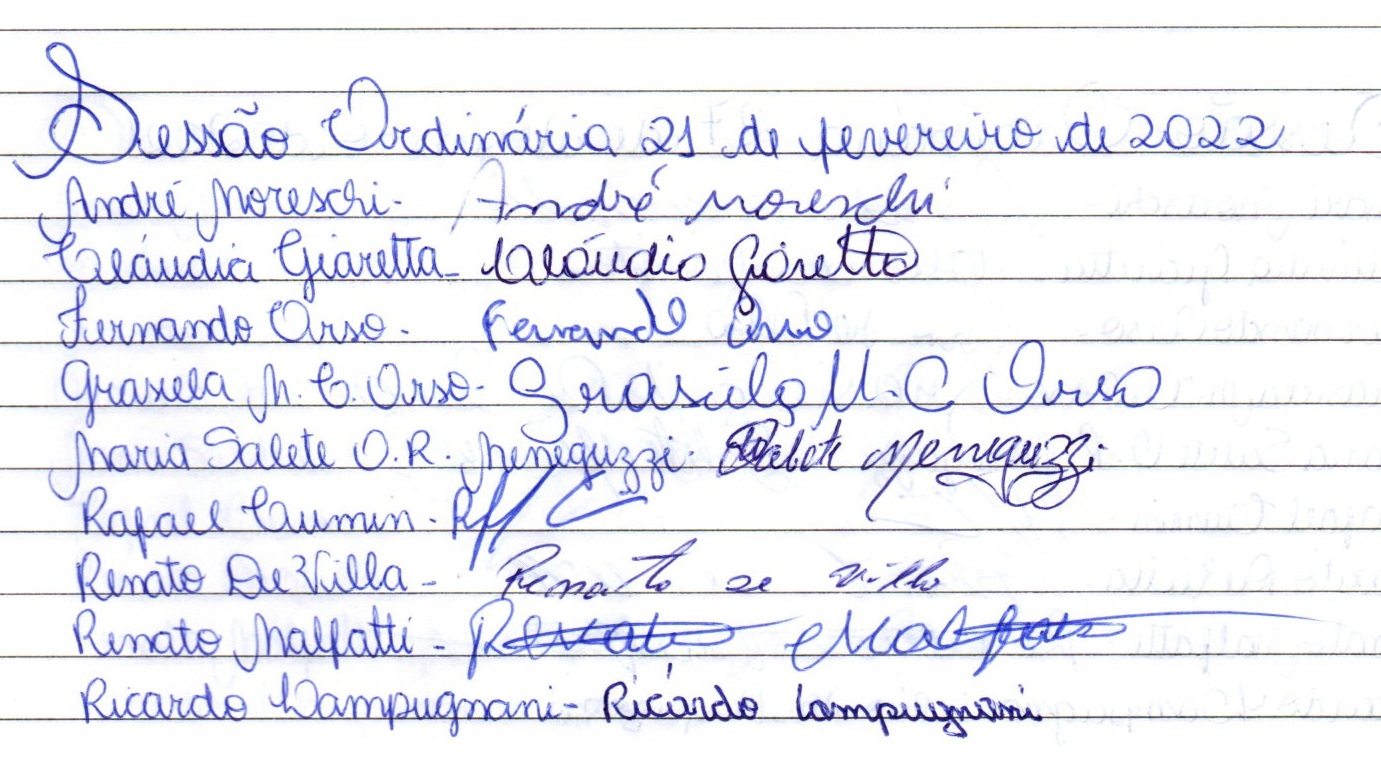 Sessão Ordinária 21 de fevereiro de 2022
André Moreschi - André Moreschi
Cláudia Giaretta - Cláudia Giaretta
Fernando Orso - Fernando Orso
Grasiela M. C. Orso - Grasiela M. C. Orso
Maria Salete O. R. Meneguzzi. Salete Meneguzzi
Rafael Cumin -
Renato De Villa - Renato de villa
Renato Malfatti - Renato Malfatti
Ricardo Lampugnani - Ricardo Lampugnani